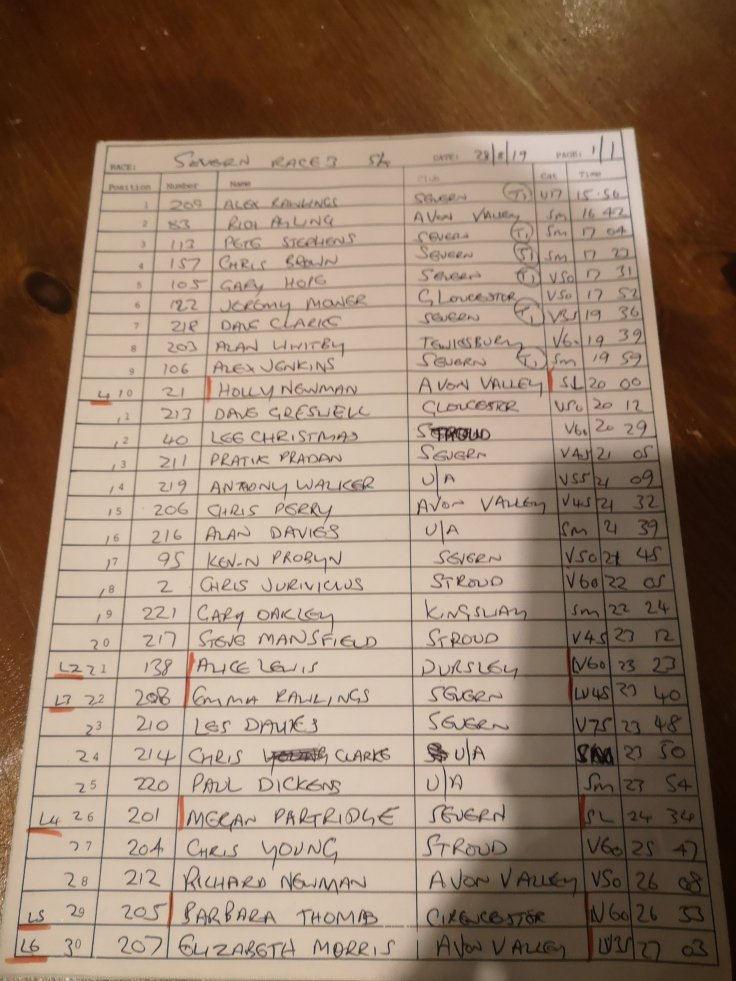 RACE: SEVERN RACE 3 5K DATE: 28/8/19 PAGE: 1/1
Position Number Name Club Cat Time
1 209 ALEX RAWLINGS SEVERN T1 U17 15.56
2 83 AYLING AVON VALLEY SM 16 42
3 113 PETE STEPHENS SEVERN T1 SM 17 04
4 157 CHRIS BROWN SEVERN SM 17 23
5 105 GARY HOPE SEVERN T1 V50 17 31
6 122 JEREMY MOWER GLOUCESTER V50 17 52
7 218 DAVE CLARKE SEVERN T1 V35 19 36
8 203 ALAN WHITBY TEWKESBURY V60 19 39
9 106 ALEX JENKINS SEVERN T1 SM 19 59
L1 10 21 HOLLY NEWMAN AVON VALLEY SL 20 00
11 213 DAVE GRESWELL GLOUCESTER V50 20 12
12 40 LEE CHRISTMAS STROUD V60 20 29
13 211 PRATIK PRADAN SEVERN V45 21 05
14 219 ANTHONY WALKER U/A V55 21 09
15 206 CHRIS PERRY AVON VALLEY V45 21 32
16 216 ALAN DAVIES U/A SM 21 39
17 95 KEVIN PROBYN SEVERN V50 21 45
18 2 CHRIS JURIVICIUS STROUD V60 22 05
19 221 GARY OAKLEY KINGSWAY SM 22 24
20 217 STEVE MANSFIELD STROUD V45 23 12
L2 21 138 ALICE LEWIS DURSLEY LV60 23 23
L3 22 208 EMMA RAWLINGS SEVERN LV45 23 40
23 210 LES DAVIES SEVERN V75 23 48
24 214 CHRIS CLARKE U/A 23 50
25 220 PAUL DICKENS U/A SM 23 54
L4 26 201 MEGAN PARTRIDGE SEVERN SL 24 34
27 204 CHRIS YOUNG STROUD V60 25 47
28 212 RICHARD NEWMAN AVON VALLEY V50 26 08
L5 29 205 BARBARA THOMAS CIRENCESTER LV60 26 53
L6 30 207 ELIZABETH MORRIS AVON VALLEY LV35 27 03